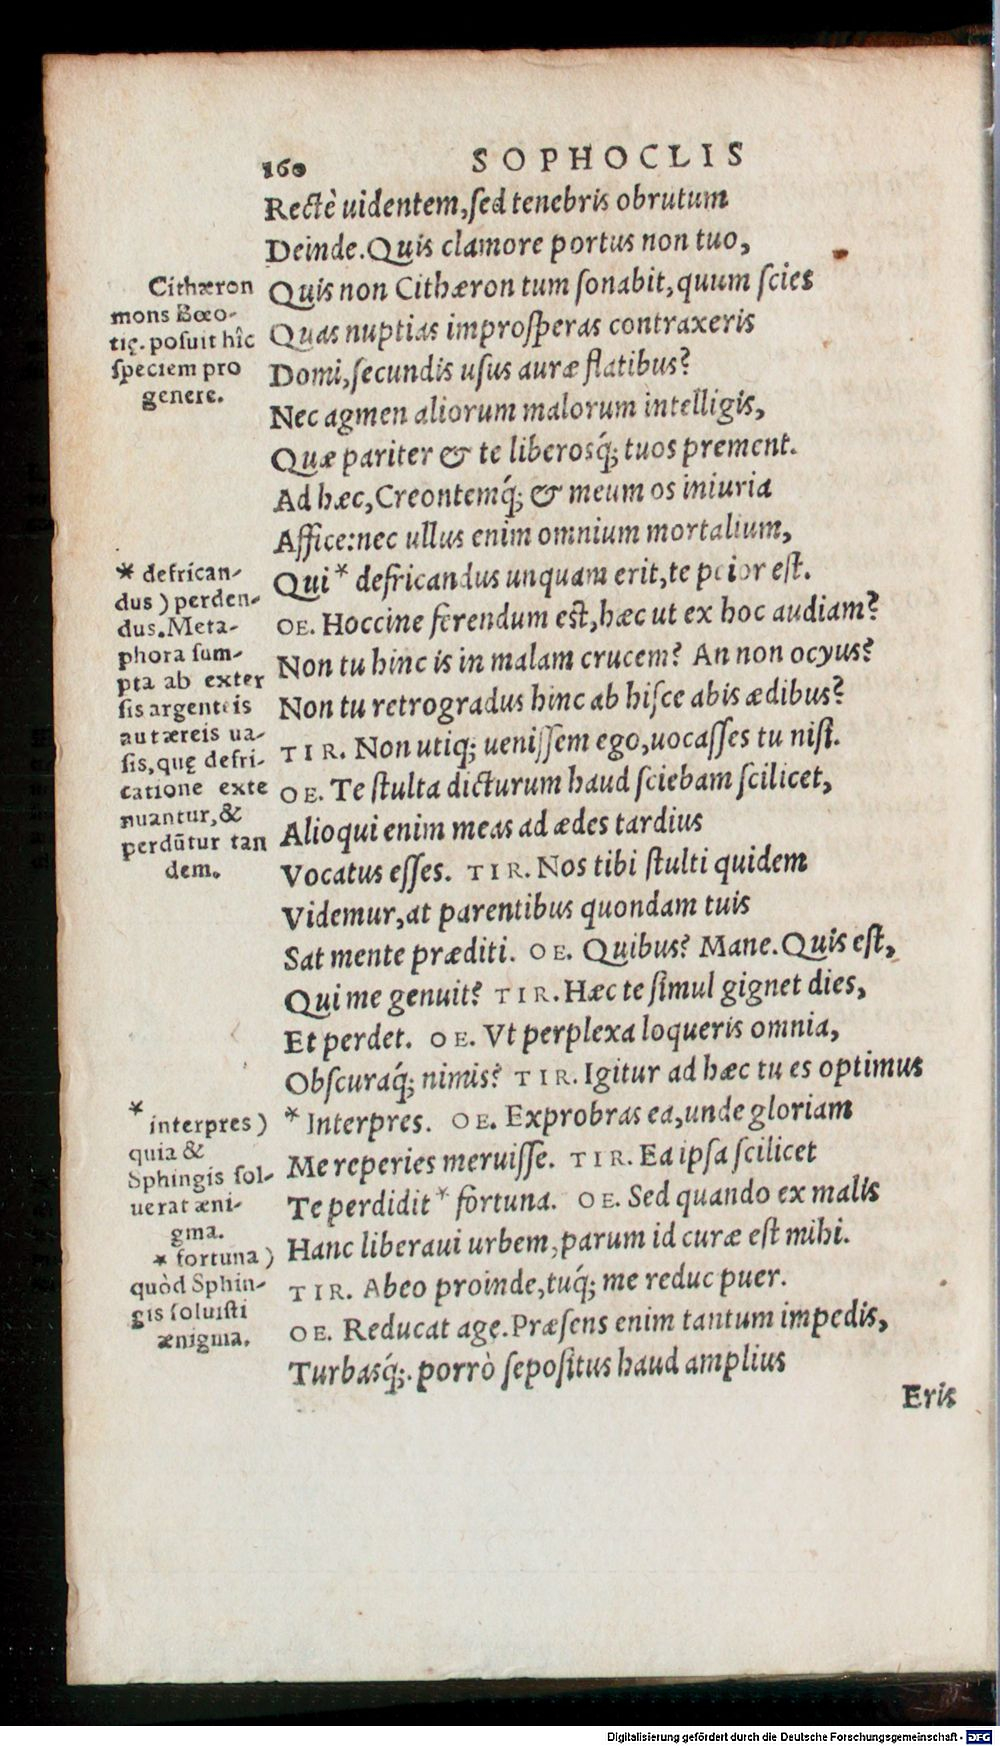 160 SOPHOCLIS
Rectè uidentem, ſed tenebris obrutum
Deinde. Quis clamore portus non tuo,
Quis non Cithæron tum ſonabit, quum ſcies
Quas nuptias improſperas contraxeris
Domi, ſecundis uſus auræ flatibus?
Nec agmen aliorum malorum intelligis,
Quæ pariter & te liberosq́; tuos prement.
Ad hæc, Creontemq́; & meum os iniuria
Affice: nec ullus enim omnium mortalium,
Qui * defricandus unquam erit, te peior eſt.
OE. Hoccine ferendum est, hæc ut ex hoc audiam?
Non tu hinc is in malam crucem? An non ocyus?
Non tu retrogradus hinc ab hiſce abis ædibus?
TIR. Non utiq; ueniſſem ego, uocaſſes tu niſt.
OE. Te ſtulta dicturum haud ſciebam ſcilicet,
Alioqui enim meas ad ædes tardius
Vocatus eſſes. TIR. Nos tibi ſtulti quidem
Videmur, at parentibus quondam tuis
Sat mente præditi. OE. Quibus? Mane. Quis eſt,
Qui me genuit? TIR. Hæc te ſimul gignet dies,
Et perdet. OE. Vt perplexa loqueris omnia,
Obſcuraq́; nimis? TIR. Igitur ad hæc tu es optimus
* Interpres. OE. Exprobras ea, unde gloriam
Me reperies meruiſſe. TIR. Ea ipſa ſcilicet
Te perdidit * fortuna. OE. Sed quando ex malis
Hanc liberaui urbem, parum id curæ eſt mihi.
TIR. Abeo proinde, tuq́; me reduc puer.
OE. Reducat age. Præſens enim tantum impedis,
Turbasq́;. porrò ſepoſitus haud amplius
Eris
Cithæron
mons Bœo-
tię. poſuit hîc
ſpeciem pro
genere.
* defrican-
dus) perden-
dus. Meta-
phora ſum-
pta ab exter
ſis argenteis
aut æreis ua-
ſis, quę defri-
catione exte
nuantur, &
perdūtur tan
dem.
*
interpres)
quia &
Sphingis ſol-
uerat æni-
gma.
* fortuna)
quòd Sphin-
gis ſoluiſti
ænigma.
Digitalisierung gefördert durch die Deutsche Forschungsgemeinschaft - DFG